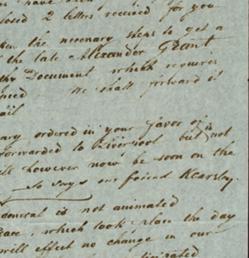 closed 2 letters received for you
the necessary steps to get a
the late Alexander Grant
the Document which requires
We shall forward it
ail
ary ordered in your favor is
forwarded to Liverpool but not
ill however now be soon on the
So says our friend Kearsly.
is not animated
eace, which took place the day
will effect no change in our